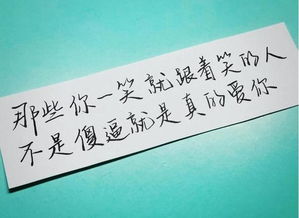 那些你一笑就跟着笑的人
不是傻逼就是真的爱你